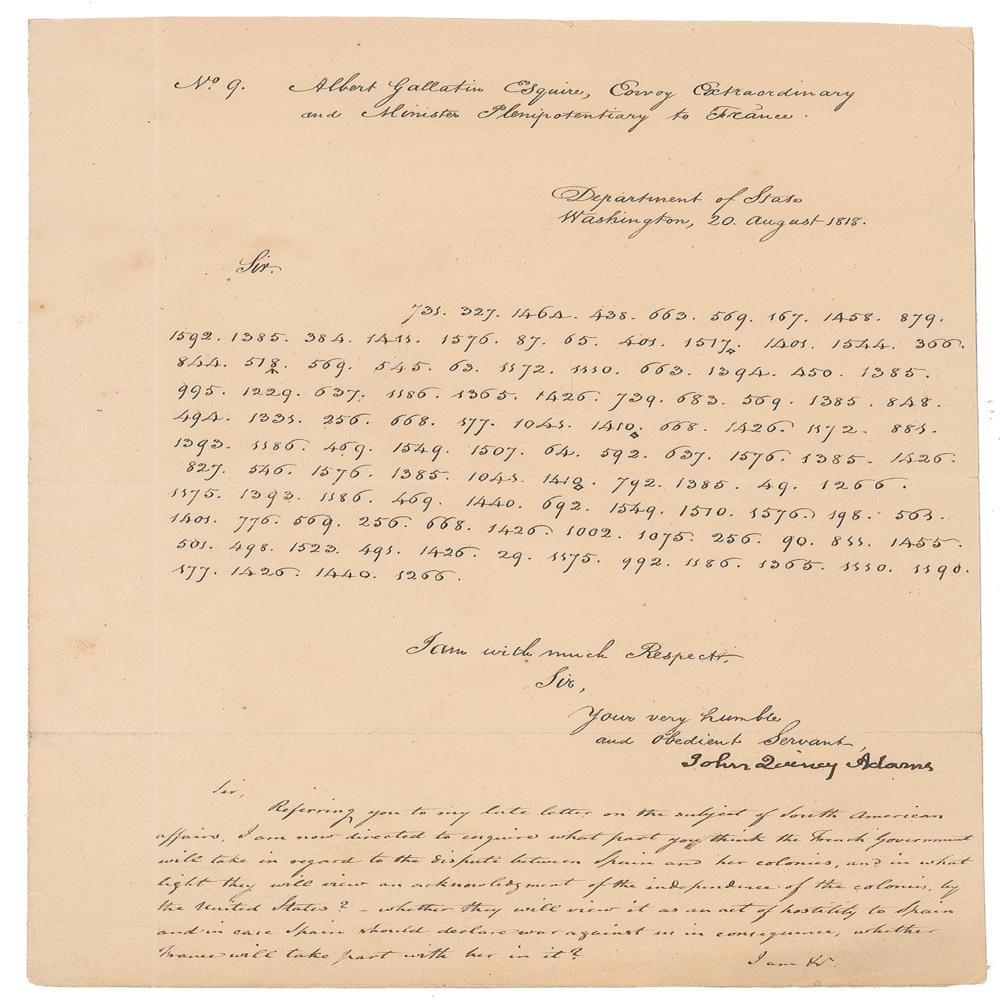 No. 9. Albert Gallatin Esquire, Envoy Extraordinary
and Minister Plenipotentiary to France.
Department of State
Washington, 20. August 1818.
Sir.
731. 327. 1464. 438. 663. 569. 167. 1458. 879.
1592. 1385. 384. 1411. 1576. 87. 65. 401. 1517. 1401. 1544. 366.
844. 518. 569. 545. 63. 1172. 1110. 663. 1394. 450. 1385.
995. 1229. 637. 1186. 1365. 1426. 739. 683. 569. 1385. 848.
494. 1331. 256. 668. 177. 1041. 1410. 668. 1426. 1172. 881.
1393. 1186. 469. 1549. 1507. 64. 592. 637. 1576. 1385. 1426.
827. 546. 1576. 1385. 1041. 1410. 792. 1385. 49. 1266.
1175. 1393. 1186. 469. 1440. 692. 1549. 1510. 1576. 198. 561.
1401. 776. 569. 256. 668. 1426. 1002. 1075. 256. 90. 811. 1455.
501. 498. 1523. 491. 1426. 29. 1175. 992. 1186. 1365. 1110. 1190.
177. 1426. 1440. 1266.
I am with much Respect,
Sir,
Your very humble
and Obedient Servant,
John Quincy Adams
Sir,
Referring you to my late letter on the subject of South American
affairs, I am now directed to enquire what part you think the French Government
will take in regard to the dispute between Spain and her colonies, and in what
light they will view an acknowledgment of the independence of the colonies, by
the United States? – whether they will view it as an act of hostility to Spain
and in case Spain should declare war against us in consequence, whether
France will take part with her in it?
I am &c.